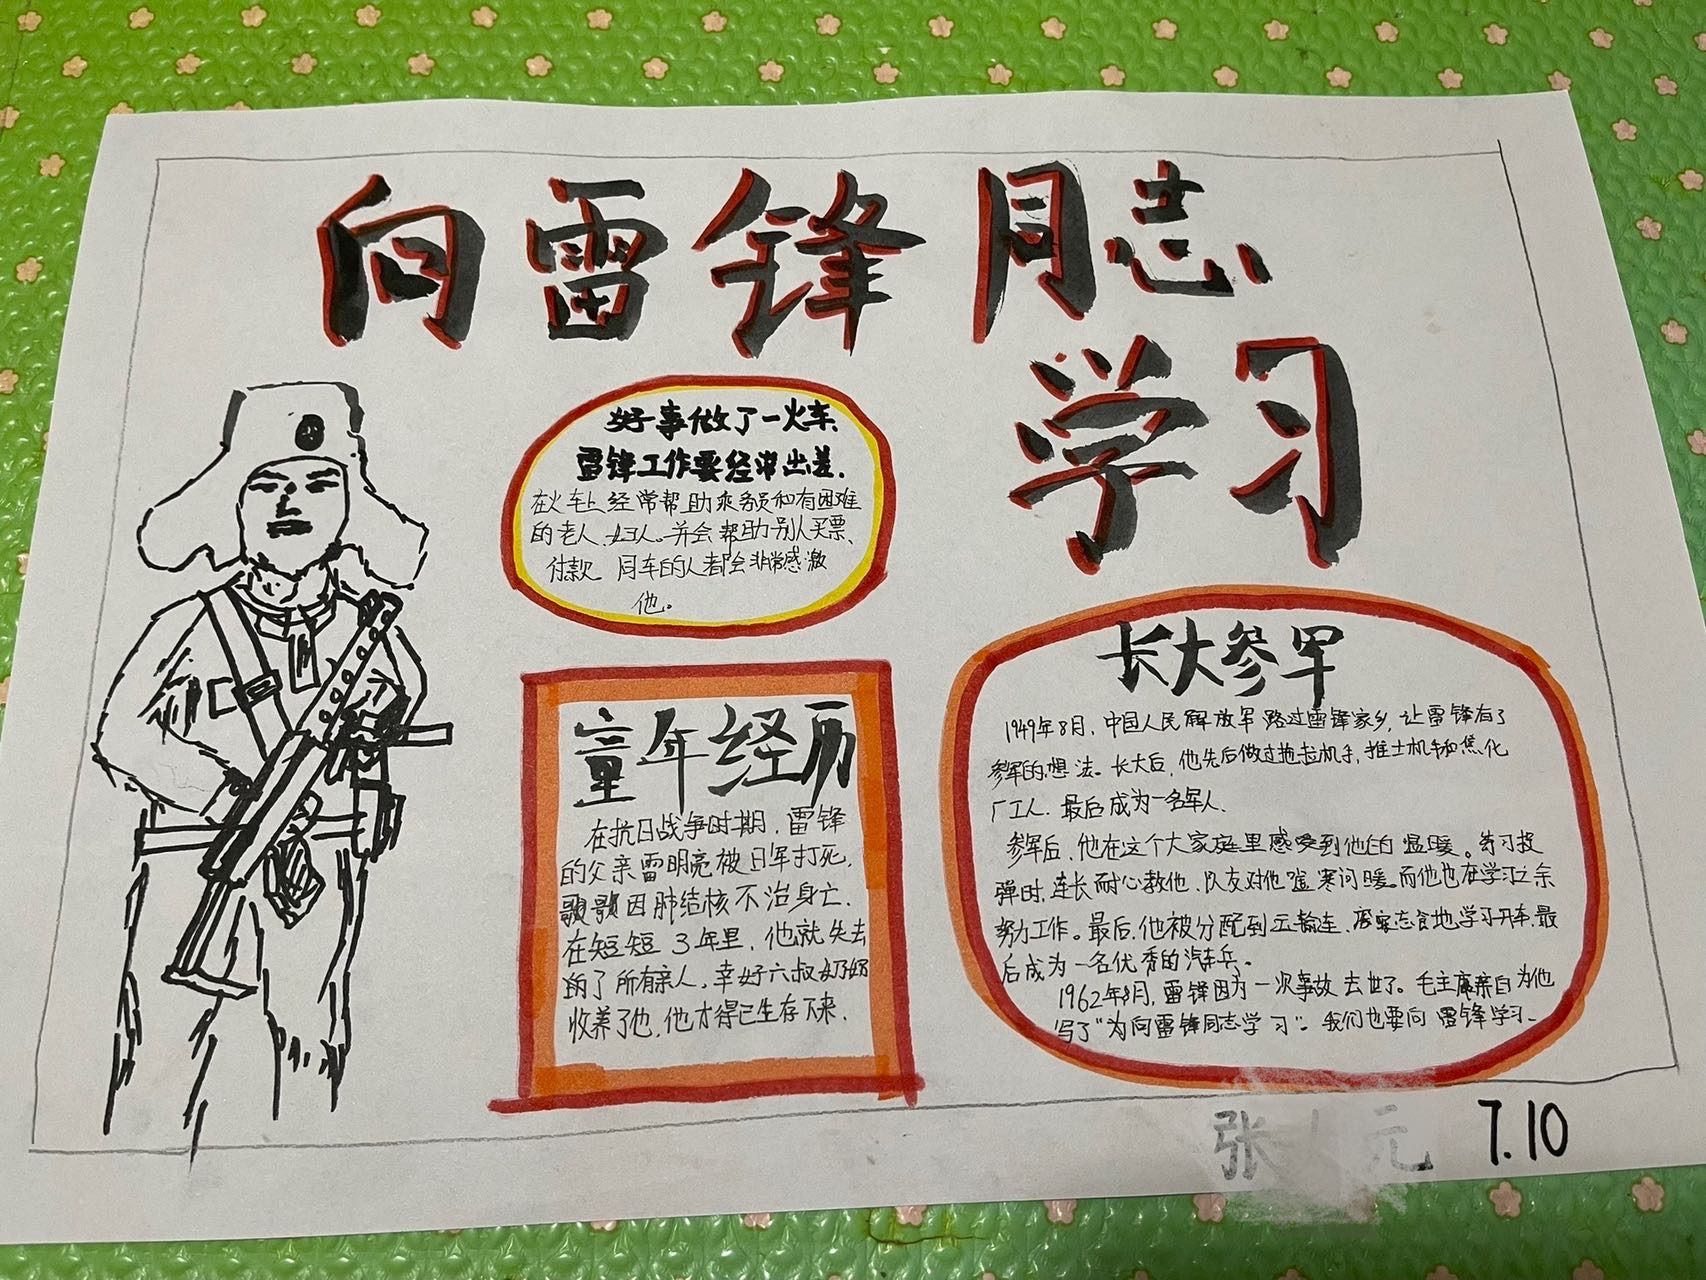 向雷锋同志
学习
好事做了一火车、
雷锋工作要经常出差.
在火车上经常帮助乘务员和有困难
的老人、妇人。并会帮助别人买票、
付款 同车的人都会非常感激
他。
童年经历
在抗日战争时期,雷锋
的父亲雷明亮被日军打死,
歌歌因肺结核不治身亡.
在短短3年里,他就失去
了所有亲人,幸好六叔奶奶
收养了他,他才得已生存下来.
长大参军
1949年8月,中国人民解放军路过雷锋家乡,让雷锋有了
参军的想法。长大后,他先后做过拖拉机手,推土机手和焦化
厂工人.最后成为一名军人.
参军后,他在这个大家庭里感受到他的温暖。练习投
弹时,连长耐心教他,队友对他嘘寒问暖。而他也在学习之余
努力工作。最后,他被分配到运输连,废寝忘食地学习开车,最
后成为一名优秀的汽车兵。
1962年8月,雷锋因为一次事故去世了。毛主席亲自为他
写了“为向雷锋同志学习”。我们也要向雷锋学习.
张 元 7.10